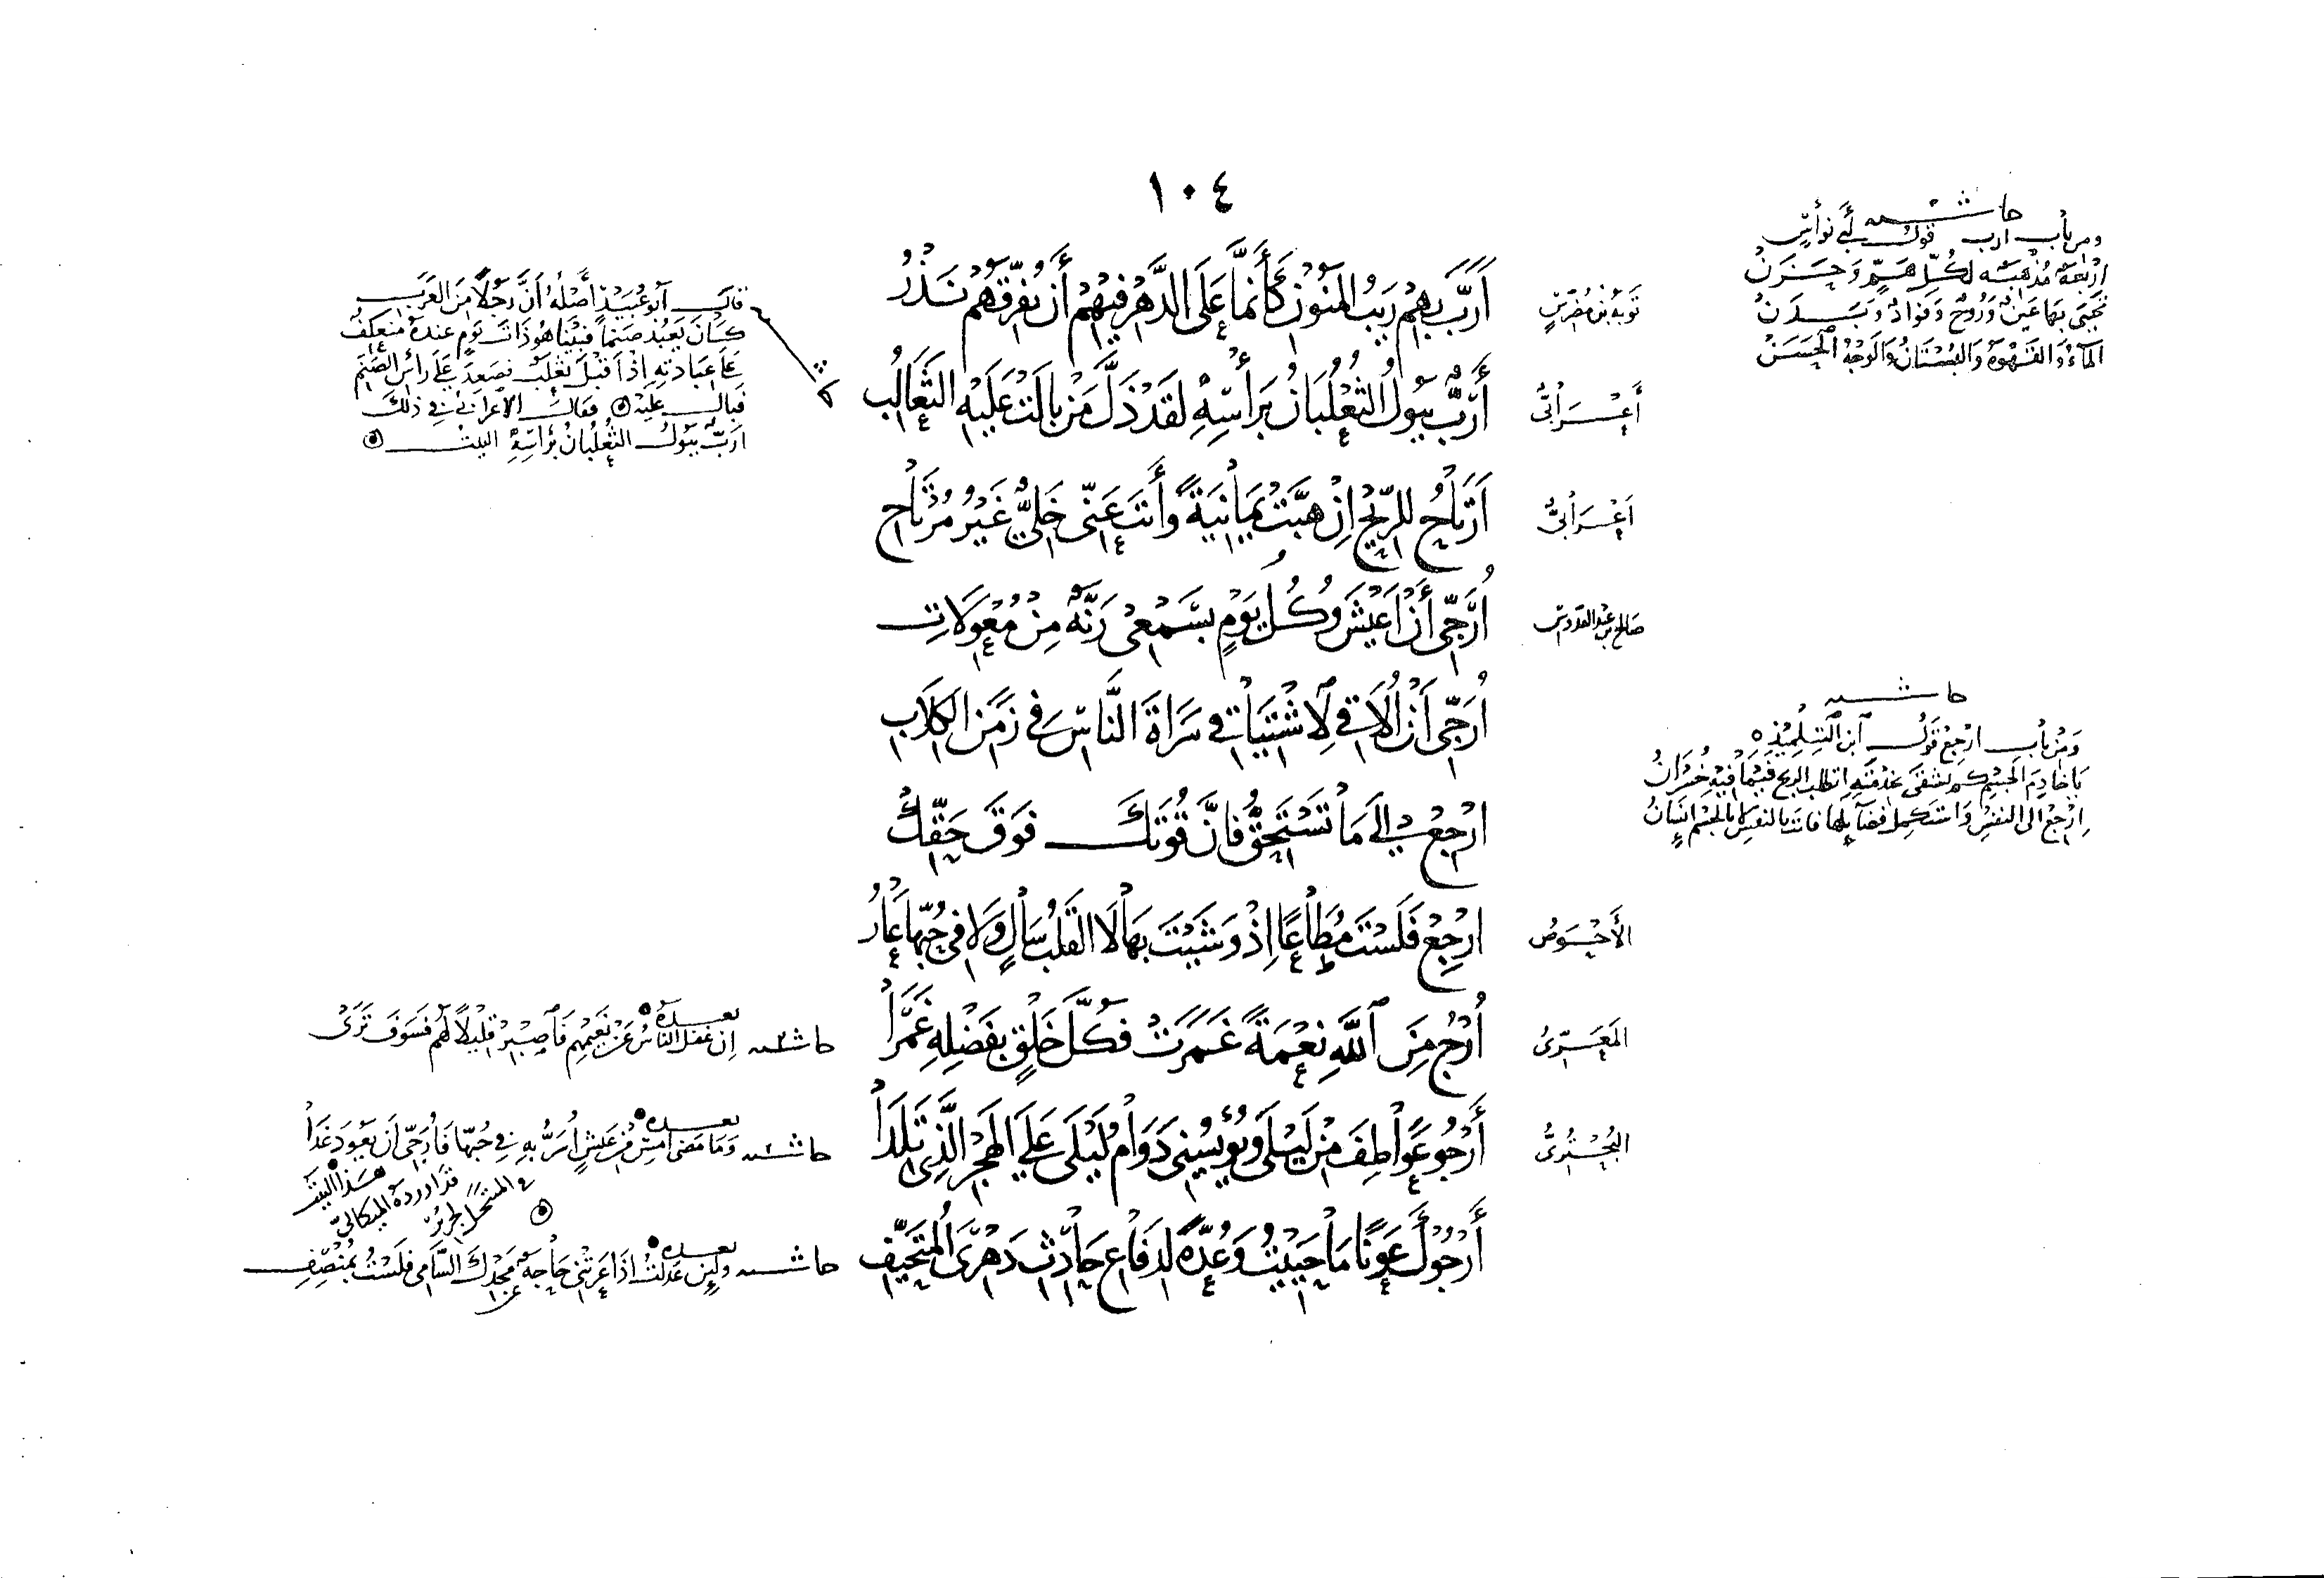 ١٠٤
حاشية
ومن باب ارب قول أبي نواس
اربعة مذهبة لكل هم وحزن
تحيى بها عين وروح وفؤاد وبدن
المآء والقهوة والبستان والوجه الحسن
توبة بن مضرس
أَرَبَّ بِهِمْ رَيبُ المَنُوْنِ كَأَنَّمَا عَلَى الدَّهْرِ فِيْهِمْ أَنْ يُفَرِّقَهُمْ نَذْرُ
أَعْرَابيٌّ
أَرَبٌّ يَبُوْلُ الثُّعْلُبَانُ بَرَأْسِهِ لَقَدْ ذَلَّ مَنْ بَالَتْ عَلَيْهِ الثَّعَالِبُ
قال أبو عبيد أصله أن رجلا من العرب
كان يعبد صنما فبينا هو ذات يوم عنده منعكف
على عبادته إذ أقبل ثعلب فصعد على رأس الصنم
فبال عليه فقال الأعرابي في ذلك
ارب يبول الثعلبان برأسه البيت
أَعْرَابيٌّ
أَرْتَاحُ لِلرِّيْحِ إِنْ هَبَّتْ يَمَانِيَةً وَأَنْتَ عَنِّي خَلِيٌّ غَيْرُ مُرْتَاحِ
صالح بن عبد القدوس
أُرَجِّي أَنْ أَعِيْشَ وَكُلُّ يَوْمٍ بِسَمْعِيْ رَنَّةٌ مِنْ مُعْوِلَاتِ
أُرَجِّي أَنْ أُلَاقِي لِاشْتِيَاقِي سَرَاةَ النَّاسِ فِي زَمَنِ الكِلَابِ
حاشية
ومن باب ارجع قول ابن التلميذ
يا خادم الجسم كم تشقى بخدمته اتطلب الربح فيما فيه خسران
ارجع الى النفس واستكمل فضآئلها فانت بالنفس لا بالجسم انسان
ارْجِعْ إِلَى مَا تَسْتَحِقُّ فَإِنَّ قُوْتَكَ فَوْقَ حَقِّكْ
الأَحْوَصُ
ارْجِعْ فَلَسْتَ مُطَاعًا إِذْ وَشَيْتَ بِهَا لَا القَلْبُ سَالٍ وَلَا فِي حُبِّهَا عَارُ
المَعَرِّيُ
أُرْجُ مِنَ اللَّهِ نِعْمَةً غَمَرَتْ فَكُلَّ خَلْقٍ بِفَضْلِهِ غَمَرَا
حاشية بعده
إن غفل الناس عن نعيمهم فاصبر قليلا لهم فسوف ترى
البُحْتُرِيُّ
أَرْجُو عَوَاطِفَ مِنْ لَيْلَى وَيُؤْيِسُنِي دَوَامُ لَيْلَى عَلَى الهَجْرِ الَّذِي تَلَدَا
حاشية بعده
وما مضى امس من عيش أسر به في حبها فأرجي أن يعود غدا
هذا البيت
قد اورده الميكالي
في المنتخل لجرير
أَرْجُوْكَ عَوْنًا مَا حَيِيْتُ وَعُدَّةً لِدِفَاعِ حَادِثِ دَهْرِيَ المُتَحَيِّفِ
حاشية بعده
ولئن عدلت اذا عرتني حاجة عن مجدك السامي فلست بمنصف